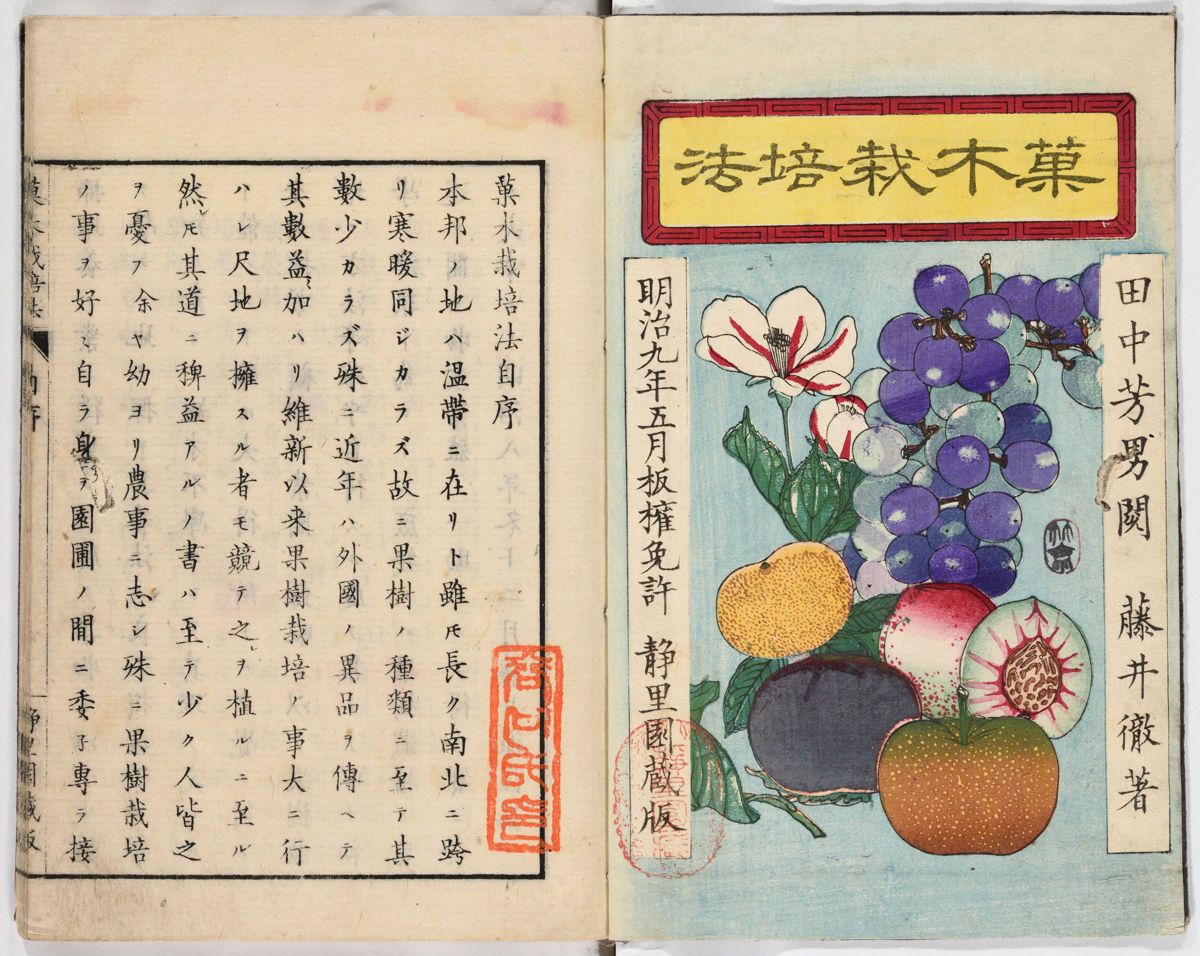 菓木栽培法
田中芳男閲　藤井徹著
明治九年五月板権免許　静里園蔵版
菓木栽培法自序
本邦ノ地ハ温帶ニ在リト雖モ長ク南北ニ跨
リ寒暖同ジカラズ故ニ果樹ノ種類ニ至テ其
數少カラズ殊ニ近年ハ外國ノ異品ヲ傳ヘテ
其數益加ハリ維新以来果樹栽培ノ事大ニ行
ハレ尺地ヲ擁スル者モ競テ之ヲ植ルニ至ル
然レモ其道ニ稗益アルノ書ハ至テ少ク人皆之
ヲ憂フ余ヤ幼ヨリ農事ニ志シ殊ニ果樹栽培
ノ事ヲ好ミ自ラ身ヲ園圃ノ間ニ委子專ラ接
菓木栽培法
自序
静里園蔵版